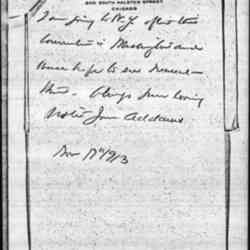 800 SOUTH HALSTED STREET
CHICAGO
I am going to N.Y. after the
Convention in Washington and
hope to see
Always your loving
sister Jane Addams
Nov 17" 1913